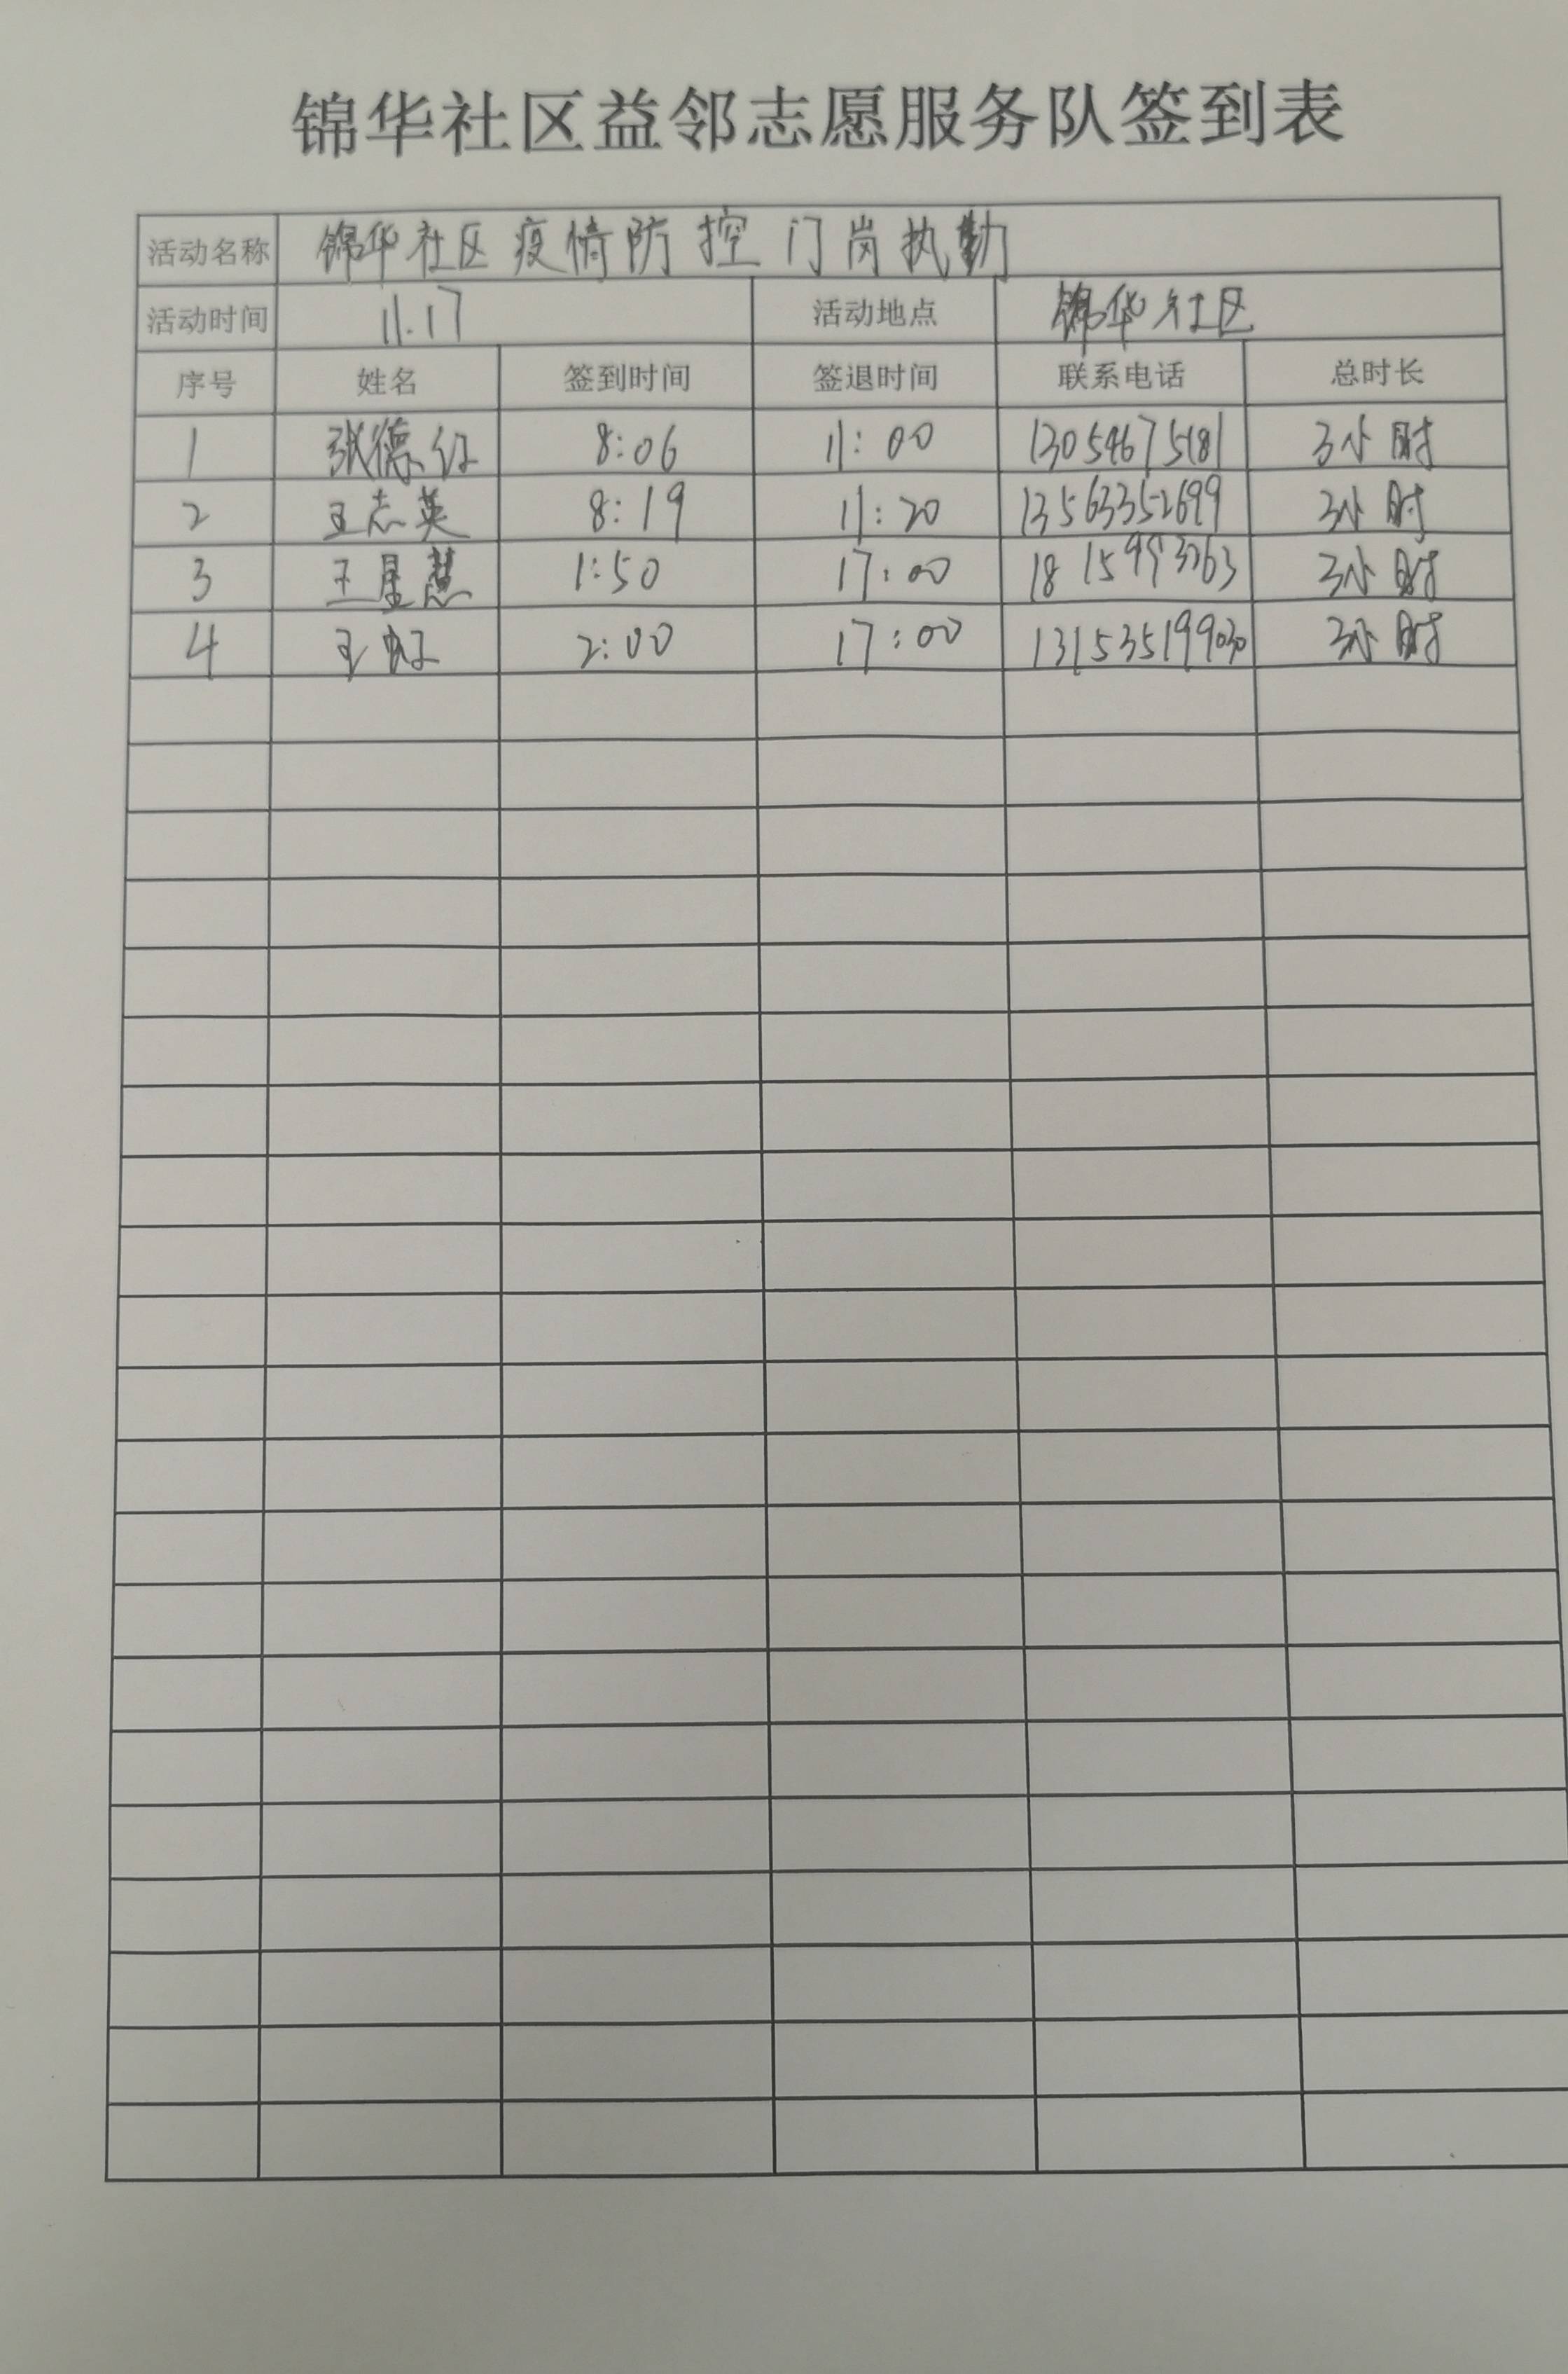 锦华社区益邻志愿服务队签到表
活动名称 锦华社区疫情防控门岗执勤
活动时间 11.17 活动地点 锦华社区
序号 姓名 签到时间 签退时间 联系电话 总时长
1 张德红 8:06 11:00 13054675181 3小时
2 王志英 8:19 11:20 13563352699 3小时
3 王星慧 1:50 17:00 18159993763 3小时
4 王虹 2:00 17:00 13153519903 3小时